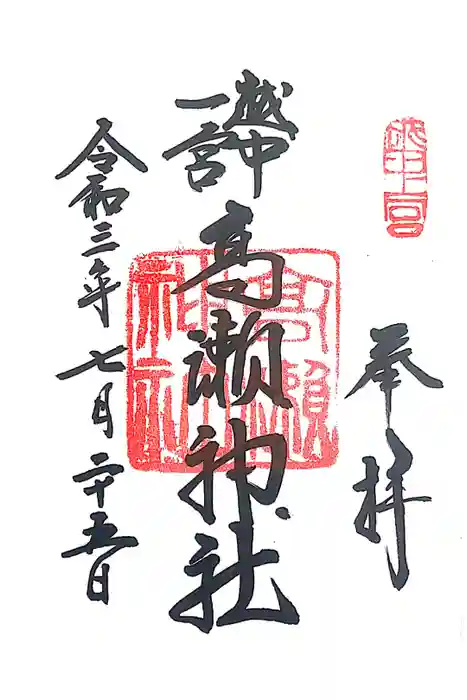 奉拝
越中一宮
越中
一宮
高瀬神社
高瀬神社
令和三年七月二十五日